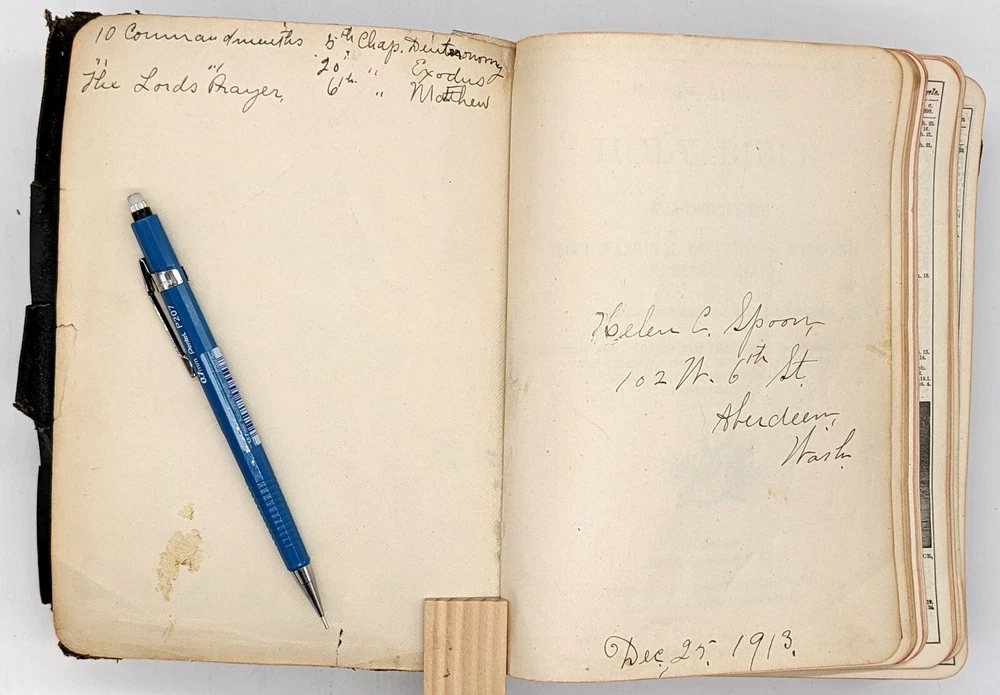 10 Commandments 5th Chap. Deuteronomy
" " 20" " Exodus
The Lords Prayer, 6th " Matthew
0.7mm Pentel P207
Helen C. Spoon,
102 W. 6th St.
Aberdeen,
Wash.
Dec. 25, 1913.